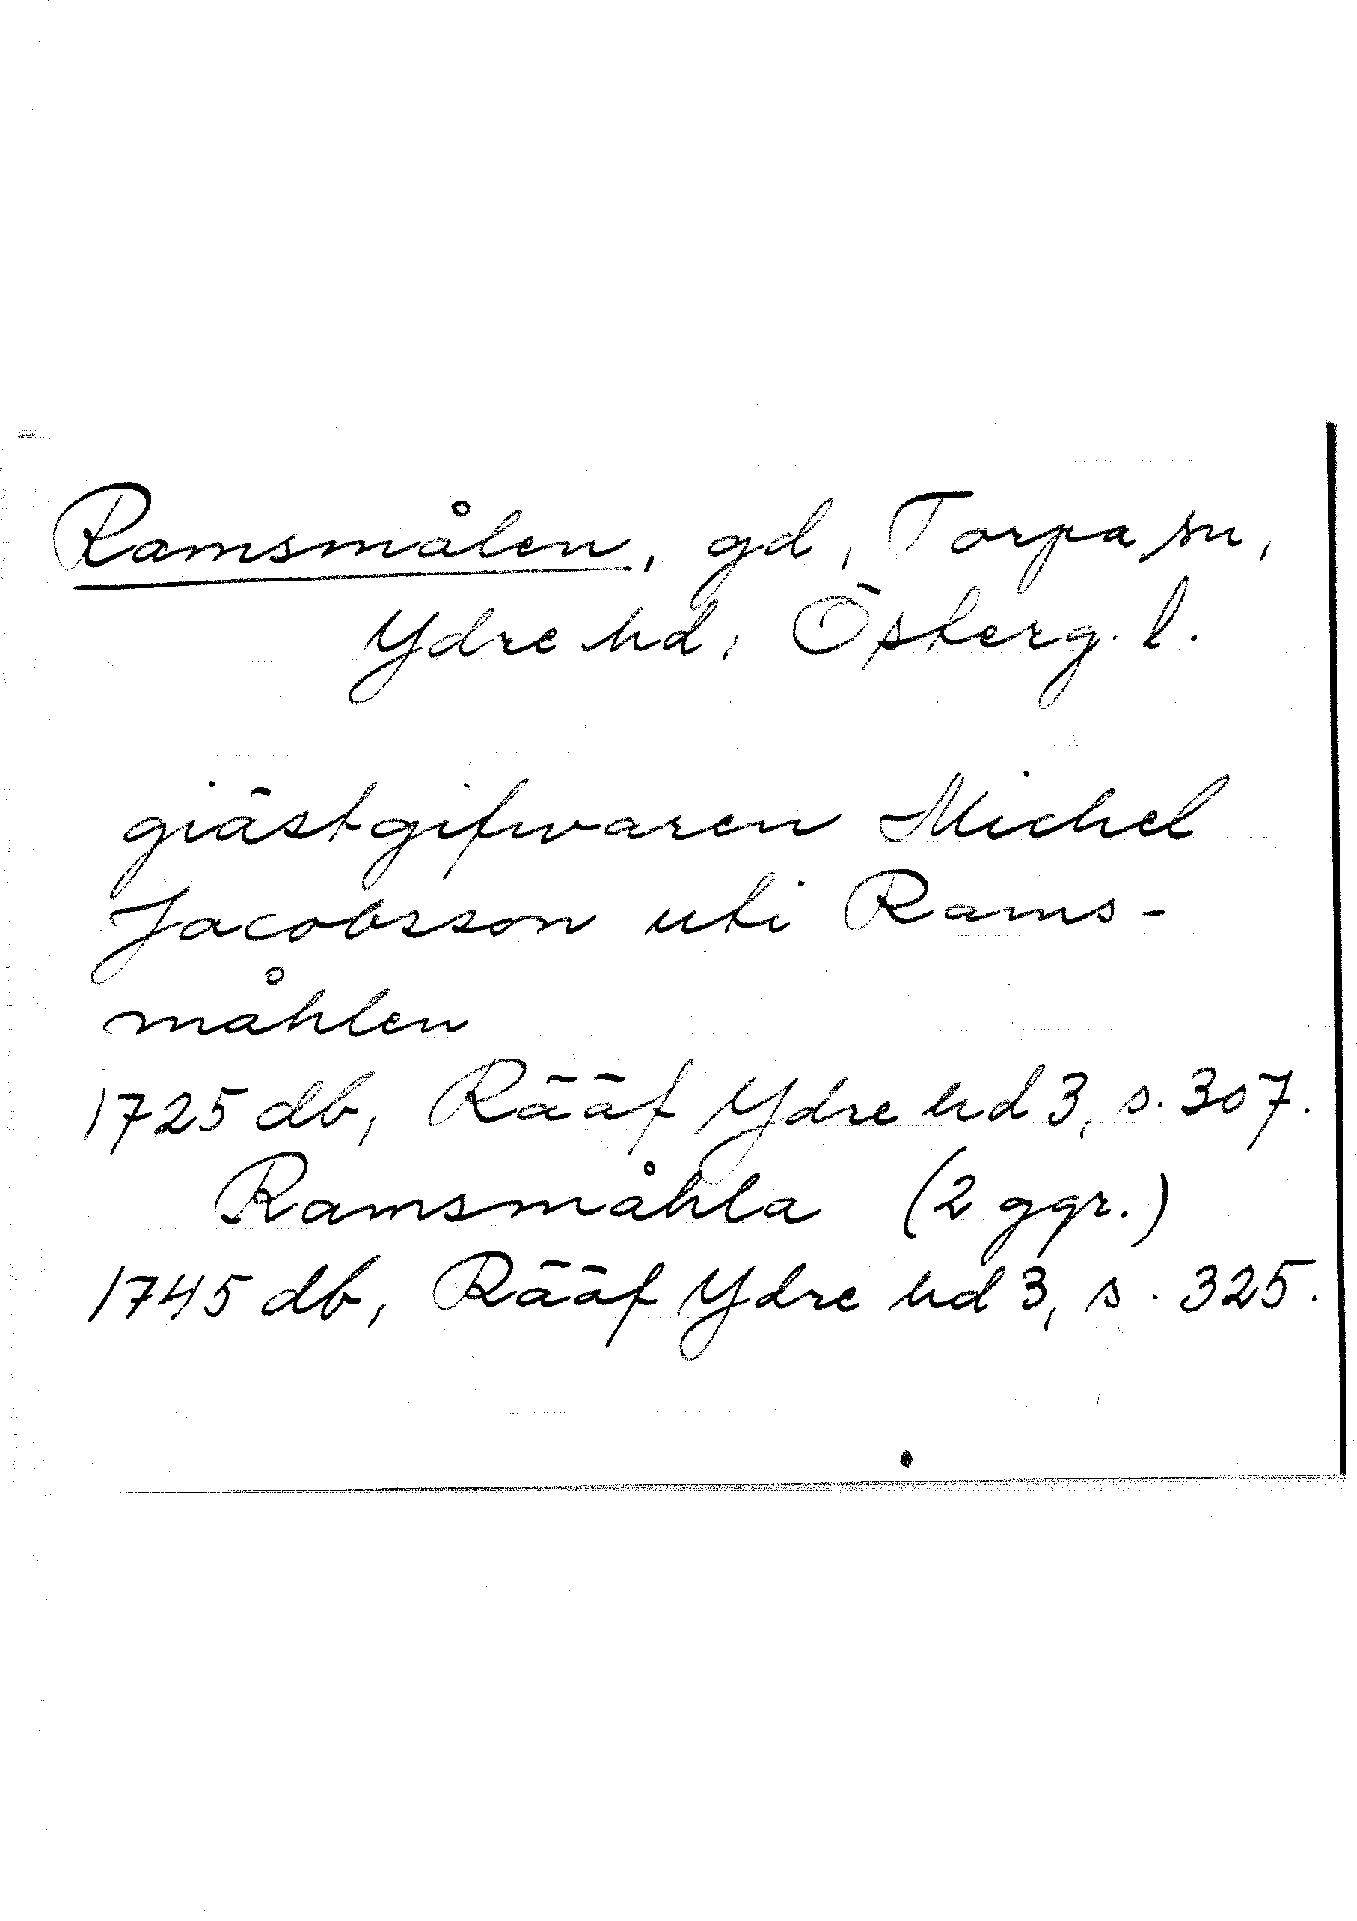 Ramsmålen, gd, Torpa sn,
Ydre hd, Österg. l.
giästgifwaren Michel
Jacobsson uti Rams-
måhlen
1725 db, Rääf Ydre hd 3, s. 307.
Ramsmåhla (2 ggr.)
1745 db, Rääf Ydre hd 3, s. 325.